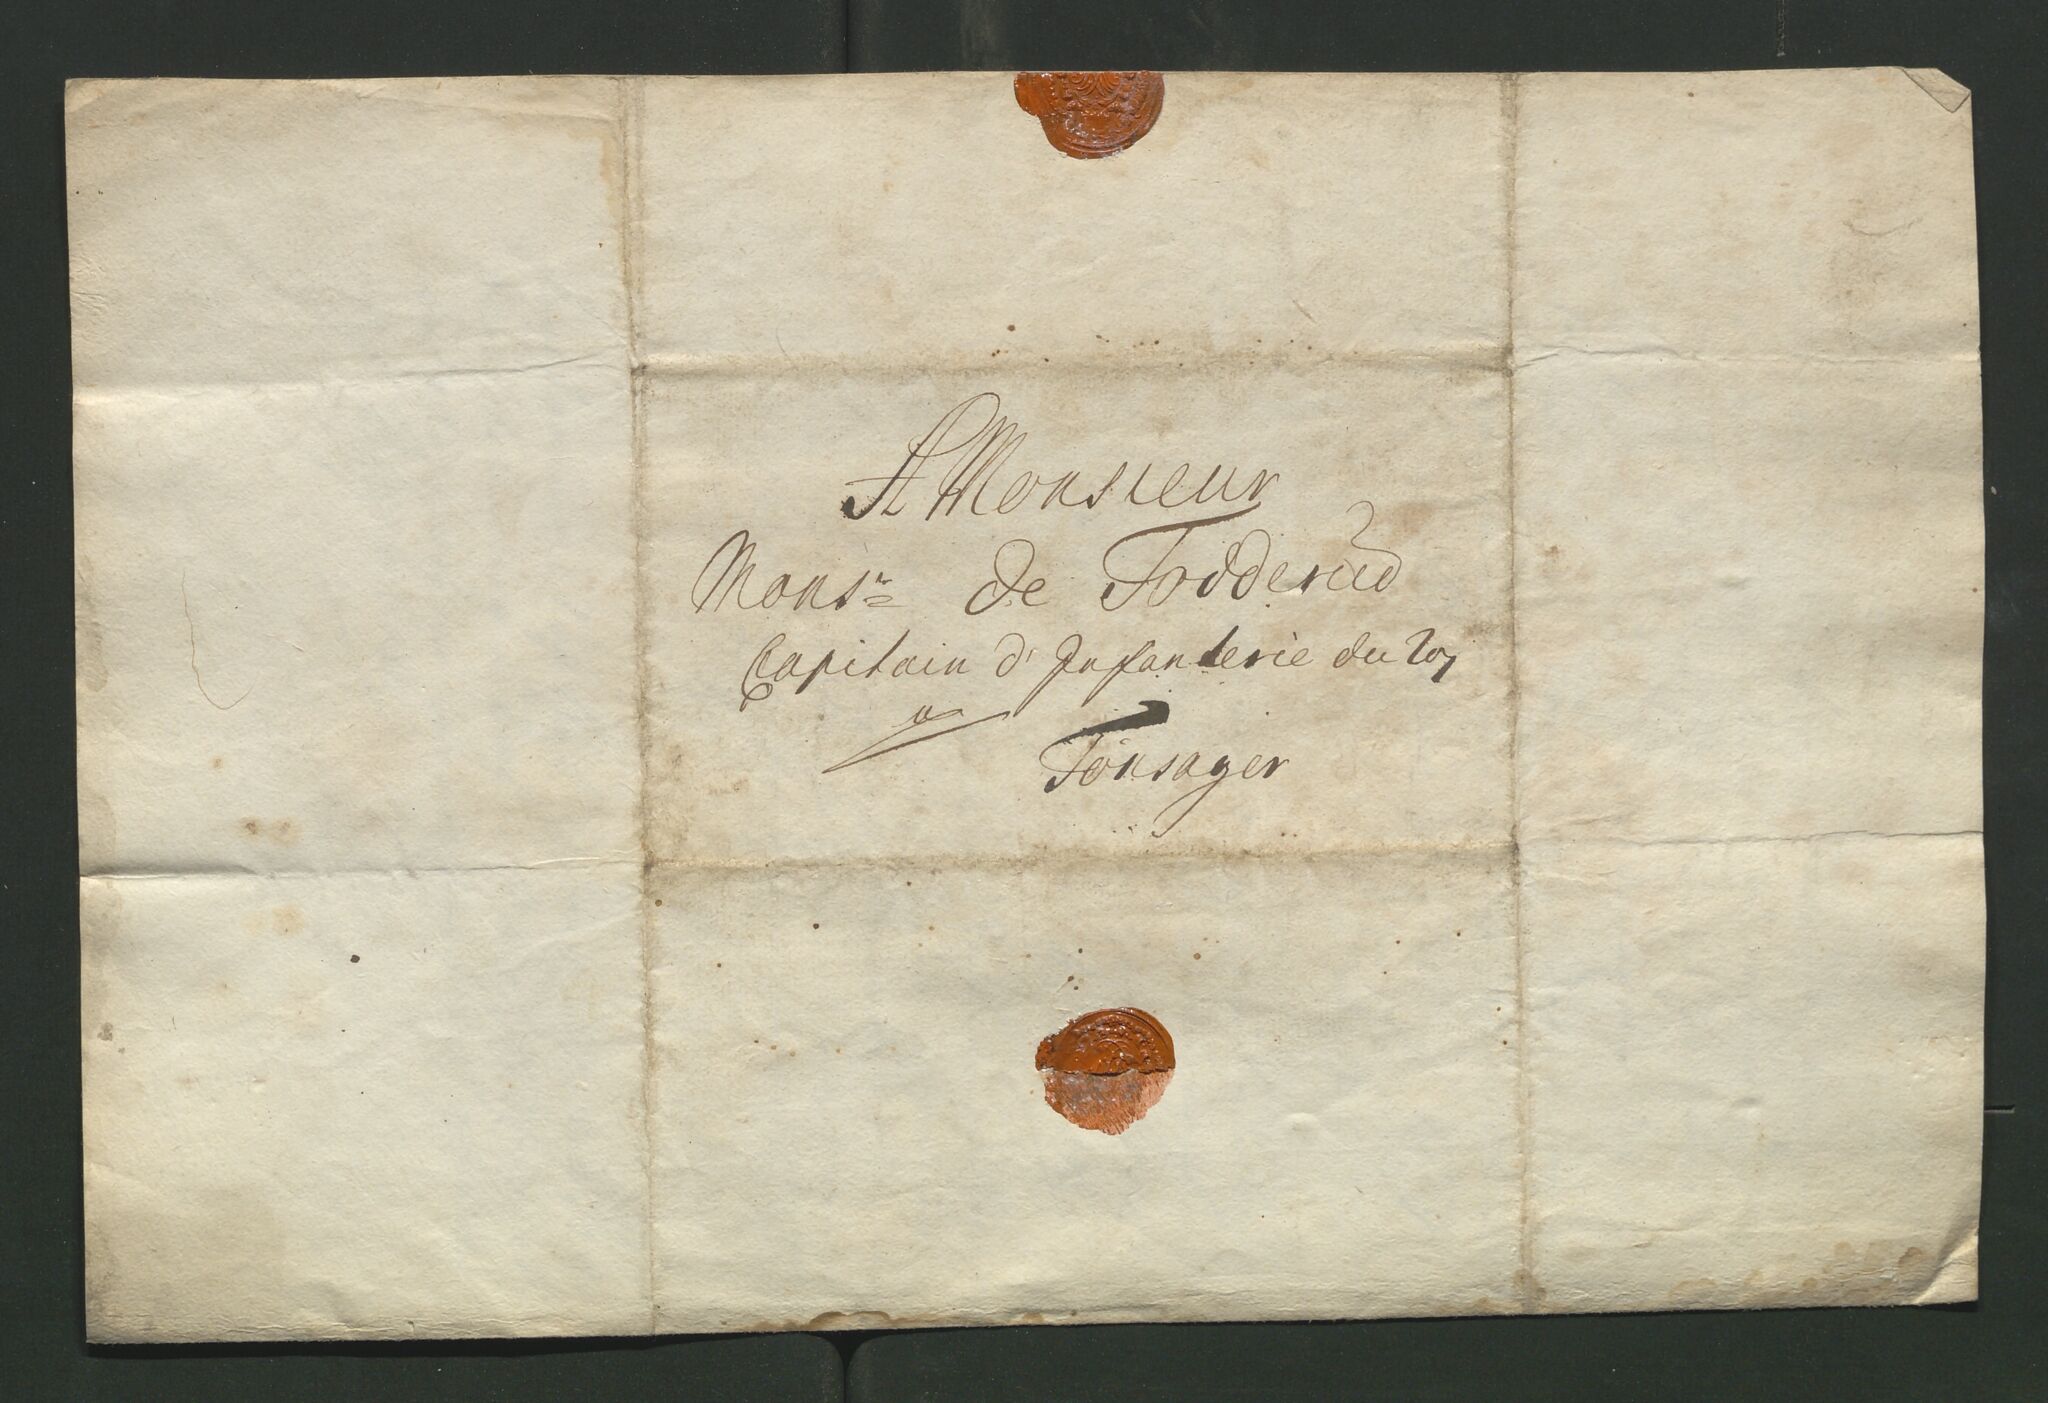 A Monsieur
Monsr de Todderud
Capitain d'Infanterie du Roy
à
Tönsager